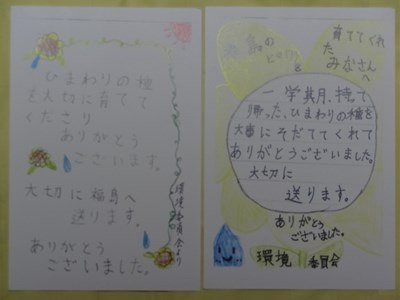 ひまわりの種
を大切に育てて
くださり
ありがとう
ございます。
大切に福島へ
送ります。
ありがとう
ございました。
環境委員会より
育ててくれ
た
みなさん
へ
一学期、持って
帰った、ひまわりの種を
大歯にそだててくれて
ありがとうございました。
大切に
送ります。
ありがとう
ございました。
環境 委員会